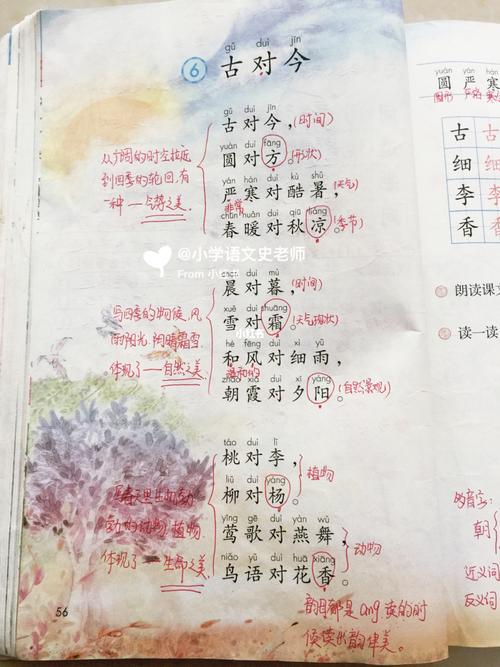 gǔ duì jīn
6 古对今
gǔ duì jīn
古对今，(时间)
yuán duì fāng
圆对方。(形状)
yán hán duì kù shǔ
严寒对酷暑，(天气)
非常
chūn nuǎn duì qiū liáng
春暖对秋凉。(季节)
从广阔的时空拉近
到四季的轮回,有
一种—气势之美.
@小学语文史老师
From 小红书
chén duì mù
晨对暮，(时间)
xuě duì shuāng
雪对霜。(天气现象)
小红书
hé fēng duì xì yǔ
和风对细雨，
温和的
zhāo xiá duì xī yáng
朝霞对夕阳。(自然景观)
写四季的物候,风
雨阳光,阴晴霜雪.
体现了—自然之美.
táo duì lǐ
桃对李，
liǔ duì yáng
柳对杨。
植物
yīng gē duì yàn wǔ
莺歌对燕舞，
niǎo yǔ duì huā xiāng
鸟语对花香。
动物
写春天里生机勃
勃的动物 植物.
体现了—生命之美.
韵母都是ang 读的时
候读出韵律美。
56
yuán yán hán
圆 严 寒
圆形 严格
古
细
李
香
朗读课文
读一读
多音字:
朝
近义词
反义词